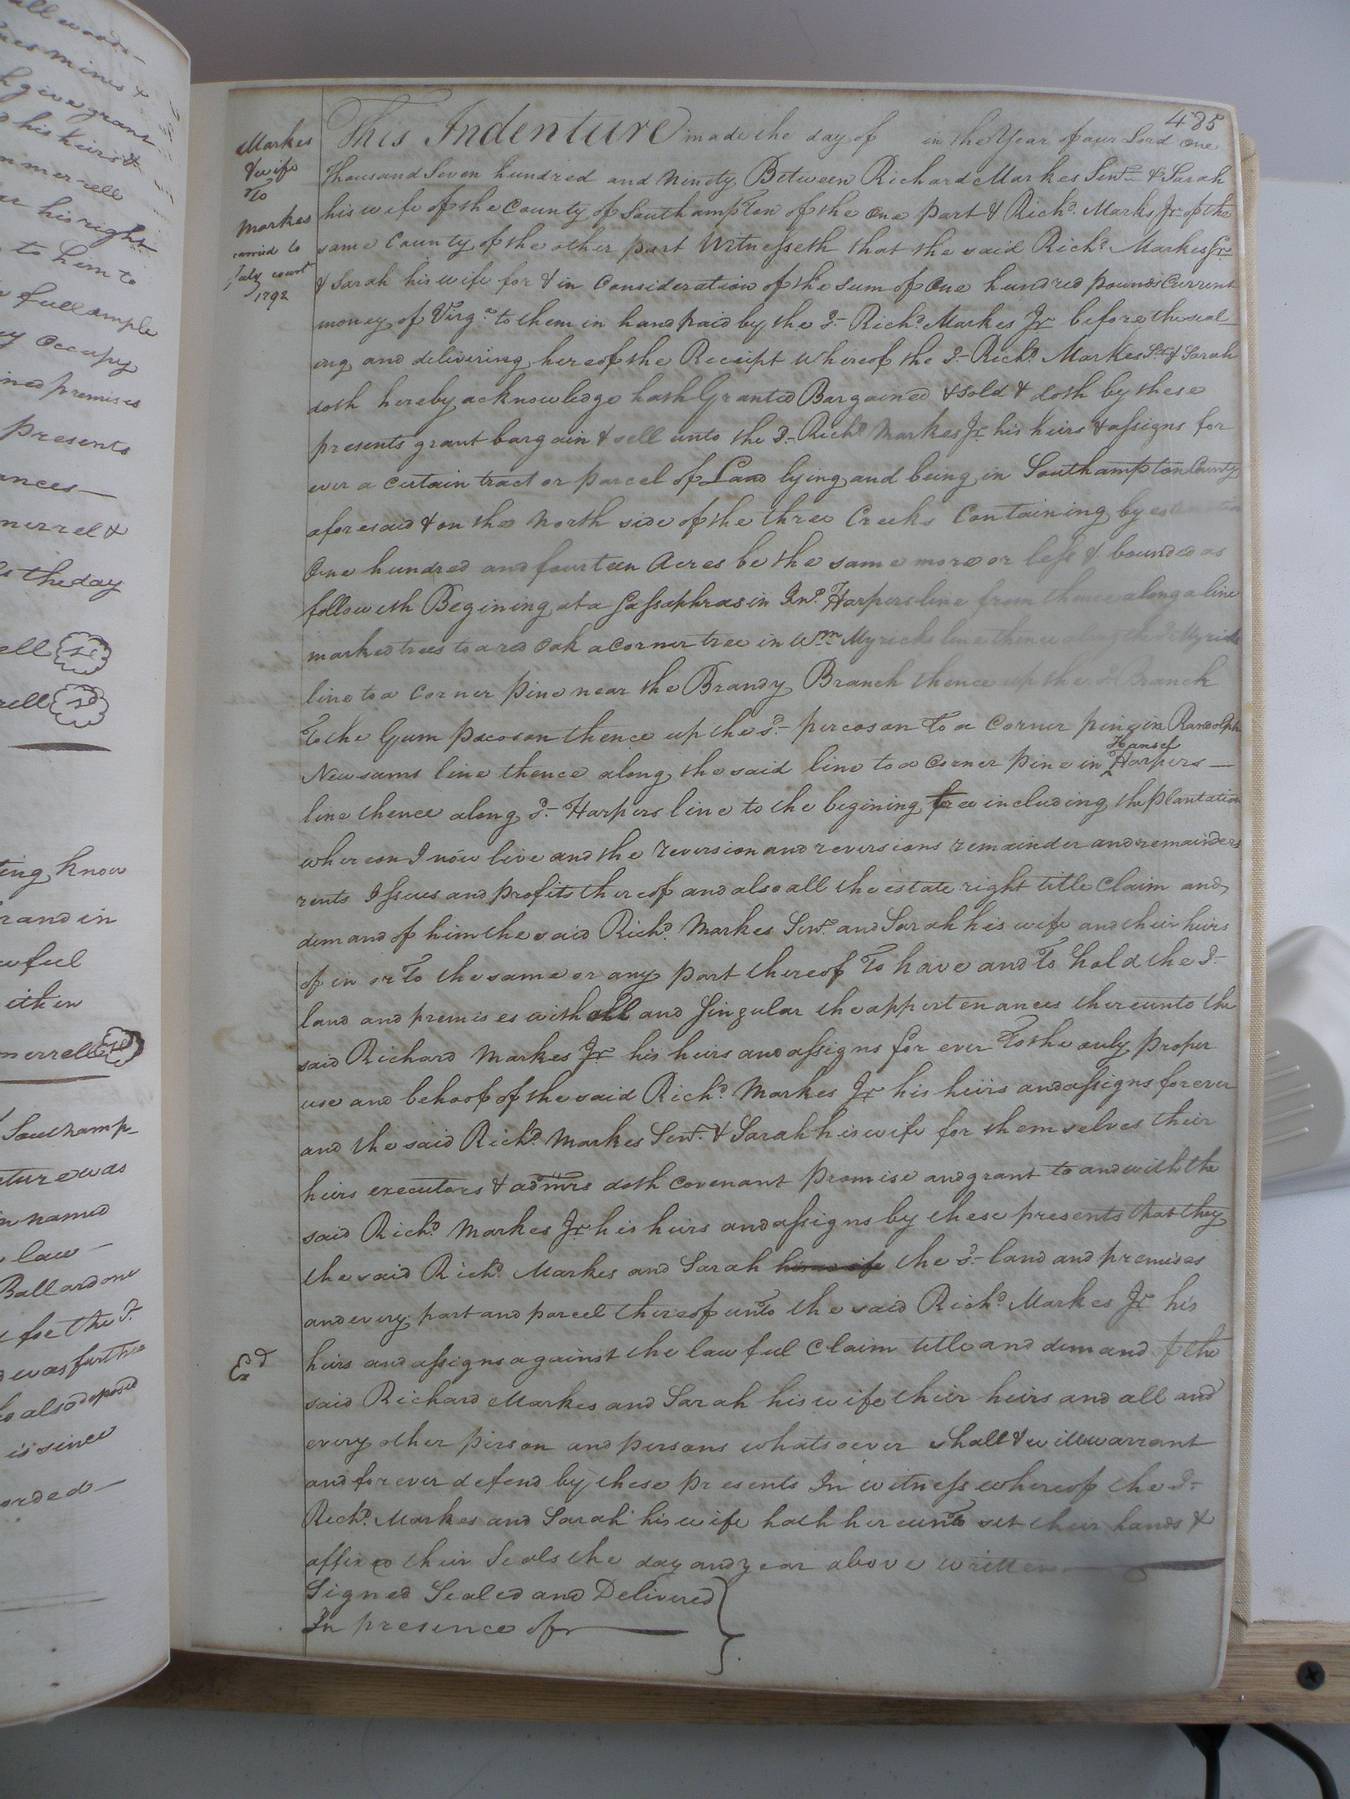 485
Markes
& wife
To
Markes
carried to
July court
1792
This Indenture made the day of in the Year of our Lord One
Thousand Seven hundred and Ninety Between Richard Markes Senr. & Sarah
his wife of the County of Southampton of the One part & Richd. Marks Jr. of the
same County of the other part Witnesseth that the said Richd. Markes Sr.
& Sarah his wife for & in Consideration of the sum of One hundred pounds Current
money of Virga. to them in hand paid by the Sd. Richd. Markes Jr before the seal
ing and delivering hereof the Receipt whereof the Sd. Richd. Markes Sr. & Sarah
doth hereby acknowledge hath Granted Bargained & Sold & doth by these
presents grant bargain & sell unto the Sd. Richd. Markes Jr. his heirs & assigns for
ever a Certain tract or parcel of Land lying and being in Southampton County
aforesaid & on the North side of the three Creeks Containing by estimation
One hundred and fourteen Acres be the same more or less & bounded as
followeth Begining at a Sassaphras in Jno. Harpers line from thence along a line
marked trees to a red Oak a Corner tree in Wm. Myricks line thence along the Sd. Myricks
line to a Corner Pine near the Brandy Branch thence up the Sd. Branch
To the Gum Pocoson thence up the sd. percoson To a Corner pine in Randolph
Newsams line thence along the said line to a Corner Pine in Hansel Harpers
line thence along Sd. Harpers line to the begining tree including the Plantation
whereon I now live and the reversion and reversions remainder and remainders
rents Issues and Profits thereof and also all the estate right title Claim and
demand of him the said Richd. Markes Senr. and Sarah his wife and their heirs
of in or To the same or any part thereof To have and To hold the Sd.
land and premises with all and Singular the appertenances thereunto the
said Richard Markes Jr his heirs and assigns for ever To the only proper
use and behoof of the said Richd. Markes Jr his heiirs and assigns forever
and the said Richd. Markes Senr. & Sarah his wife for them selves their
heirs executors & admrs doth Covenant Promise and grant to and with the
said Richd. Markes Jr his heirs and assigns by these presents that they
the said Richd. Markes and Sarah his wife the sd. land and premises
and every part and parcel thereof unto the said Richd. Markes Jr his
Exd
heirs and assigns against the lawful Claim title and demand of the
said Richard Markes and Sarah his wife their heirs and all and
every other person and persons whatsoever shall & will warrant
and forever defend by these presents In witness whereof the Sd.
Richd. Markes and Sarah his wife hath hereunto set their hands &
affixed their Seals the day and year above written
Signed Sealed and Delivered
In presence of